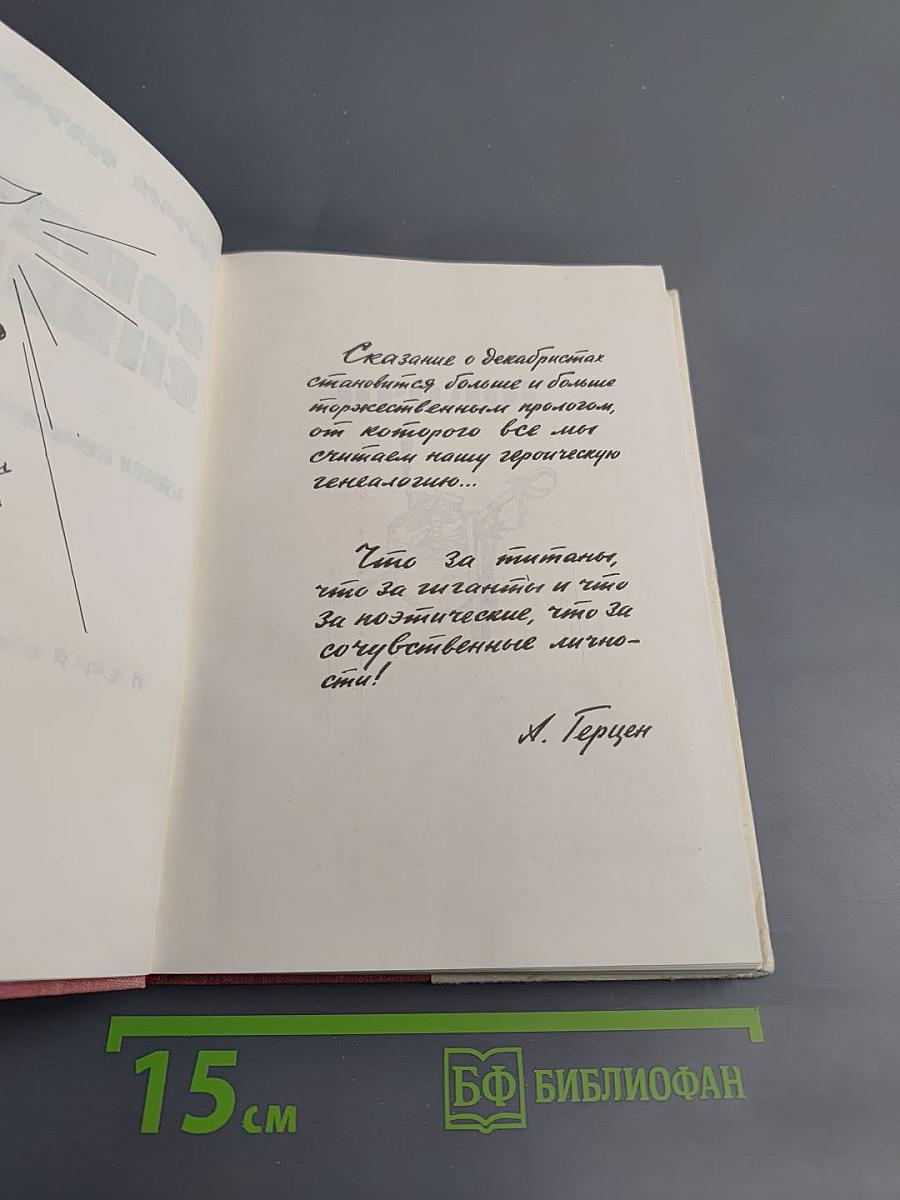 Сказание о декабристах
становится больше и больше
торжественным прологом,
от которого все мы
считаем нашу героическую
генеалогию...
Что за титаны,
что за гиганты и что
за поэтические, что за
сочувственные лично-
сти!
А. Герцен
15 см
БФ БИБЛИОФАН